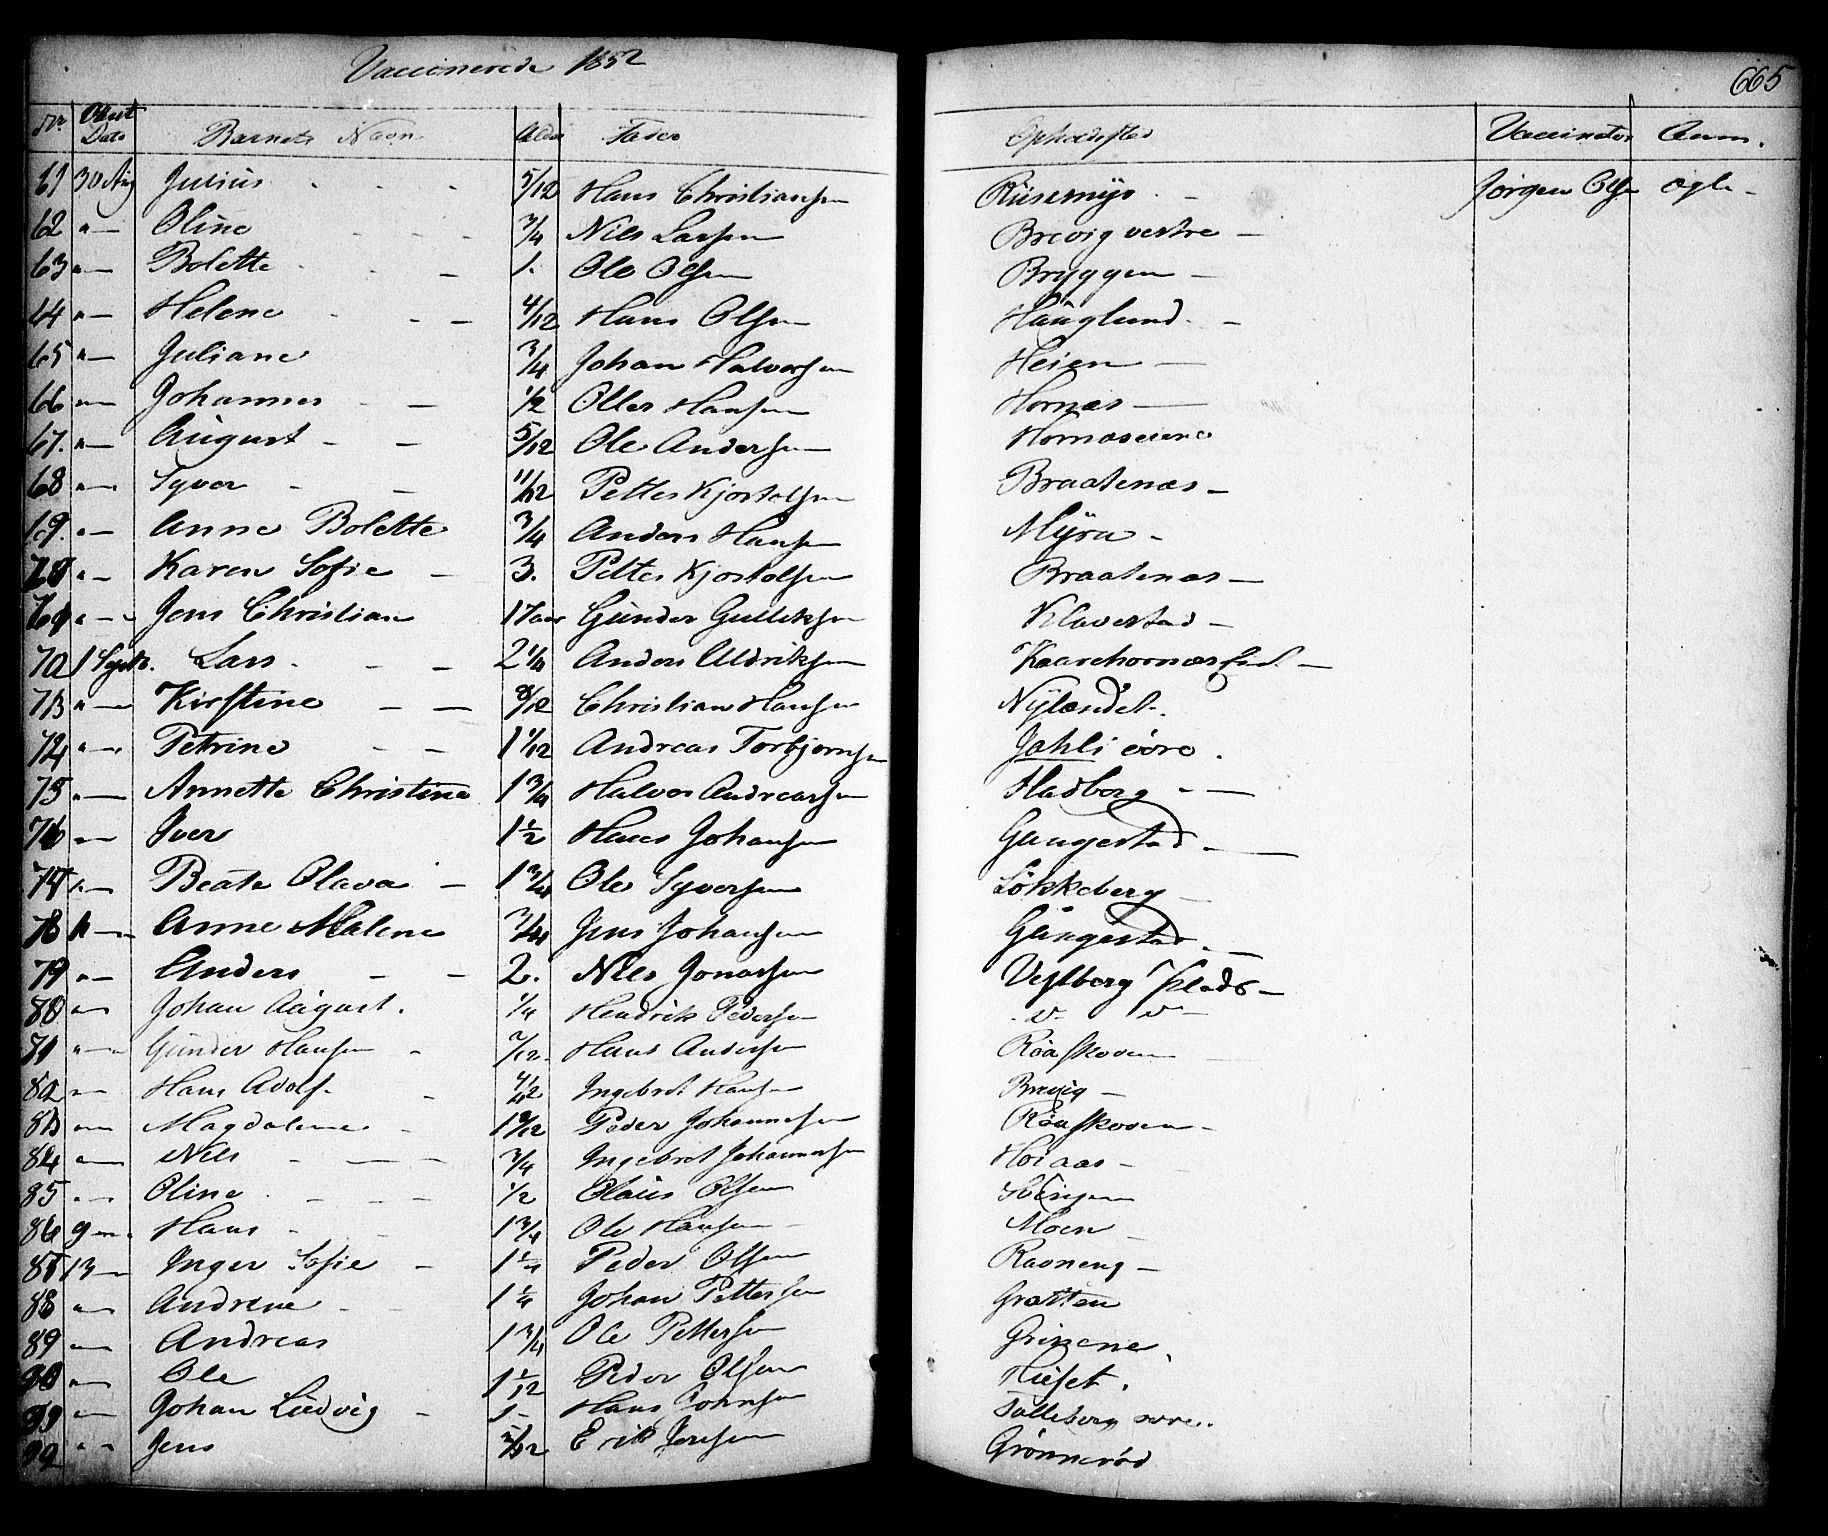 Vaccinerede 1852
665
Nr. Vacst Dato Barnets Navn Alder Fader Opholdssted Vaccinator Anm.
61 30 Aug Julius 5/12 Hans Christiansen Riisemyr Jørgen Olsen ægte
62 " Oline 3/4 Niels Larsen Brevig vestre
63 " Bolette 1. Ole Olsen Bryggen
64 " Helene 4/12 Hans Olsen Hauglund
65 " Juliane 3/4 Johan Halvorsen Heien
66 " Johannes 1/2 Oller Hansen Hornæs
67. " August 5/12 Ole Andersen Hornæseiene
68 " Syver 11/12 Petter Kjostolsen Braatenæs
69. " Anne Bolette 3/4 Anders Hansen Myra
70 " Karen Sofie 3. Petter Kjostolsen Braatenæs
" Jens Christian 17 aar Gunder Gulliksen Klavestad
72 1 Septb. Lars 2 1/4 Anders Uldriksen
73 " Kirstine 8/12 Christian Hansen Nylændet
74 " Petrine 1 1/12 Andreas Torbjørnsen Jahli övre
75 " Annette Christine 1 3/4 Halvor Andreasen Hadborg
76 " Iver 1 1/2 Hans Johansen Gungestad
77 " Beate Olava 1 3/4 Ole Syversen Lökkeberg
78 " Anne Malene 3/4 Jens Johansen Gungestad
79 " Anders 2. Niels Jonassen Vestberg Plads
80 " Johan August. 1/4 Hendrik Pedersen
" Gunder Hansen 7/12 Hans Andersen Röaskoven
82 " Hans Adolf 4/12 Ingebret Hansen Brevig
83 " Magdalene Peder Johannesen Röaskoven
84 " Niels 3/4 Ingebret Johannesen Hoiaas
85 " Oline 1/2 Olaus Olsen
86 9 " Hans 1 3/4 Ole Hansen Moen
87 13 " Inger Sofie 1 1/4 Peder Olsen Ravneng
88 " Andrine 1 1/4 Johan Pettersen Grætten
89 " Andreas 1 3/4 Ole Pettersen Grinene
90 " Ole 1 1/12 Peder Olsen Huset.
" Johan Ludvig 1 Hans Johnsen
92 " Jens 5/12 Erik Jensen Grønnerød